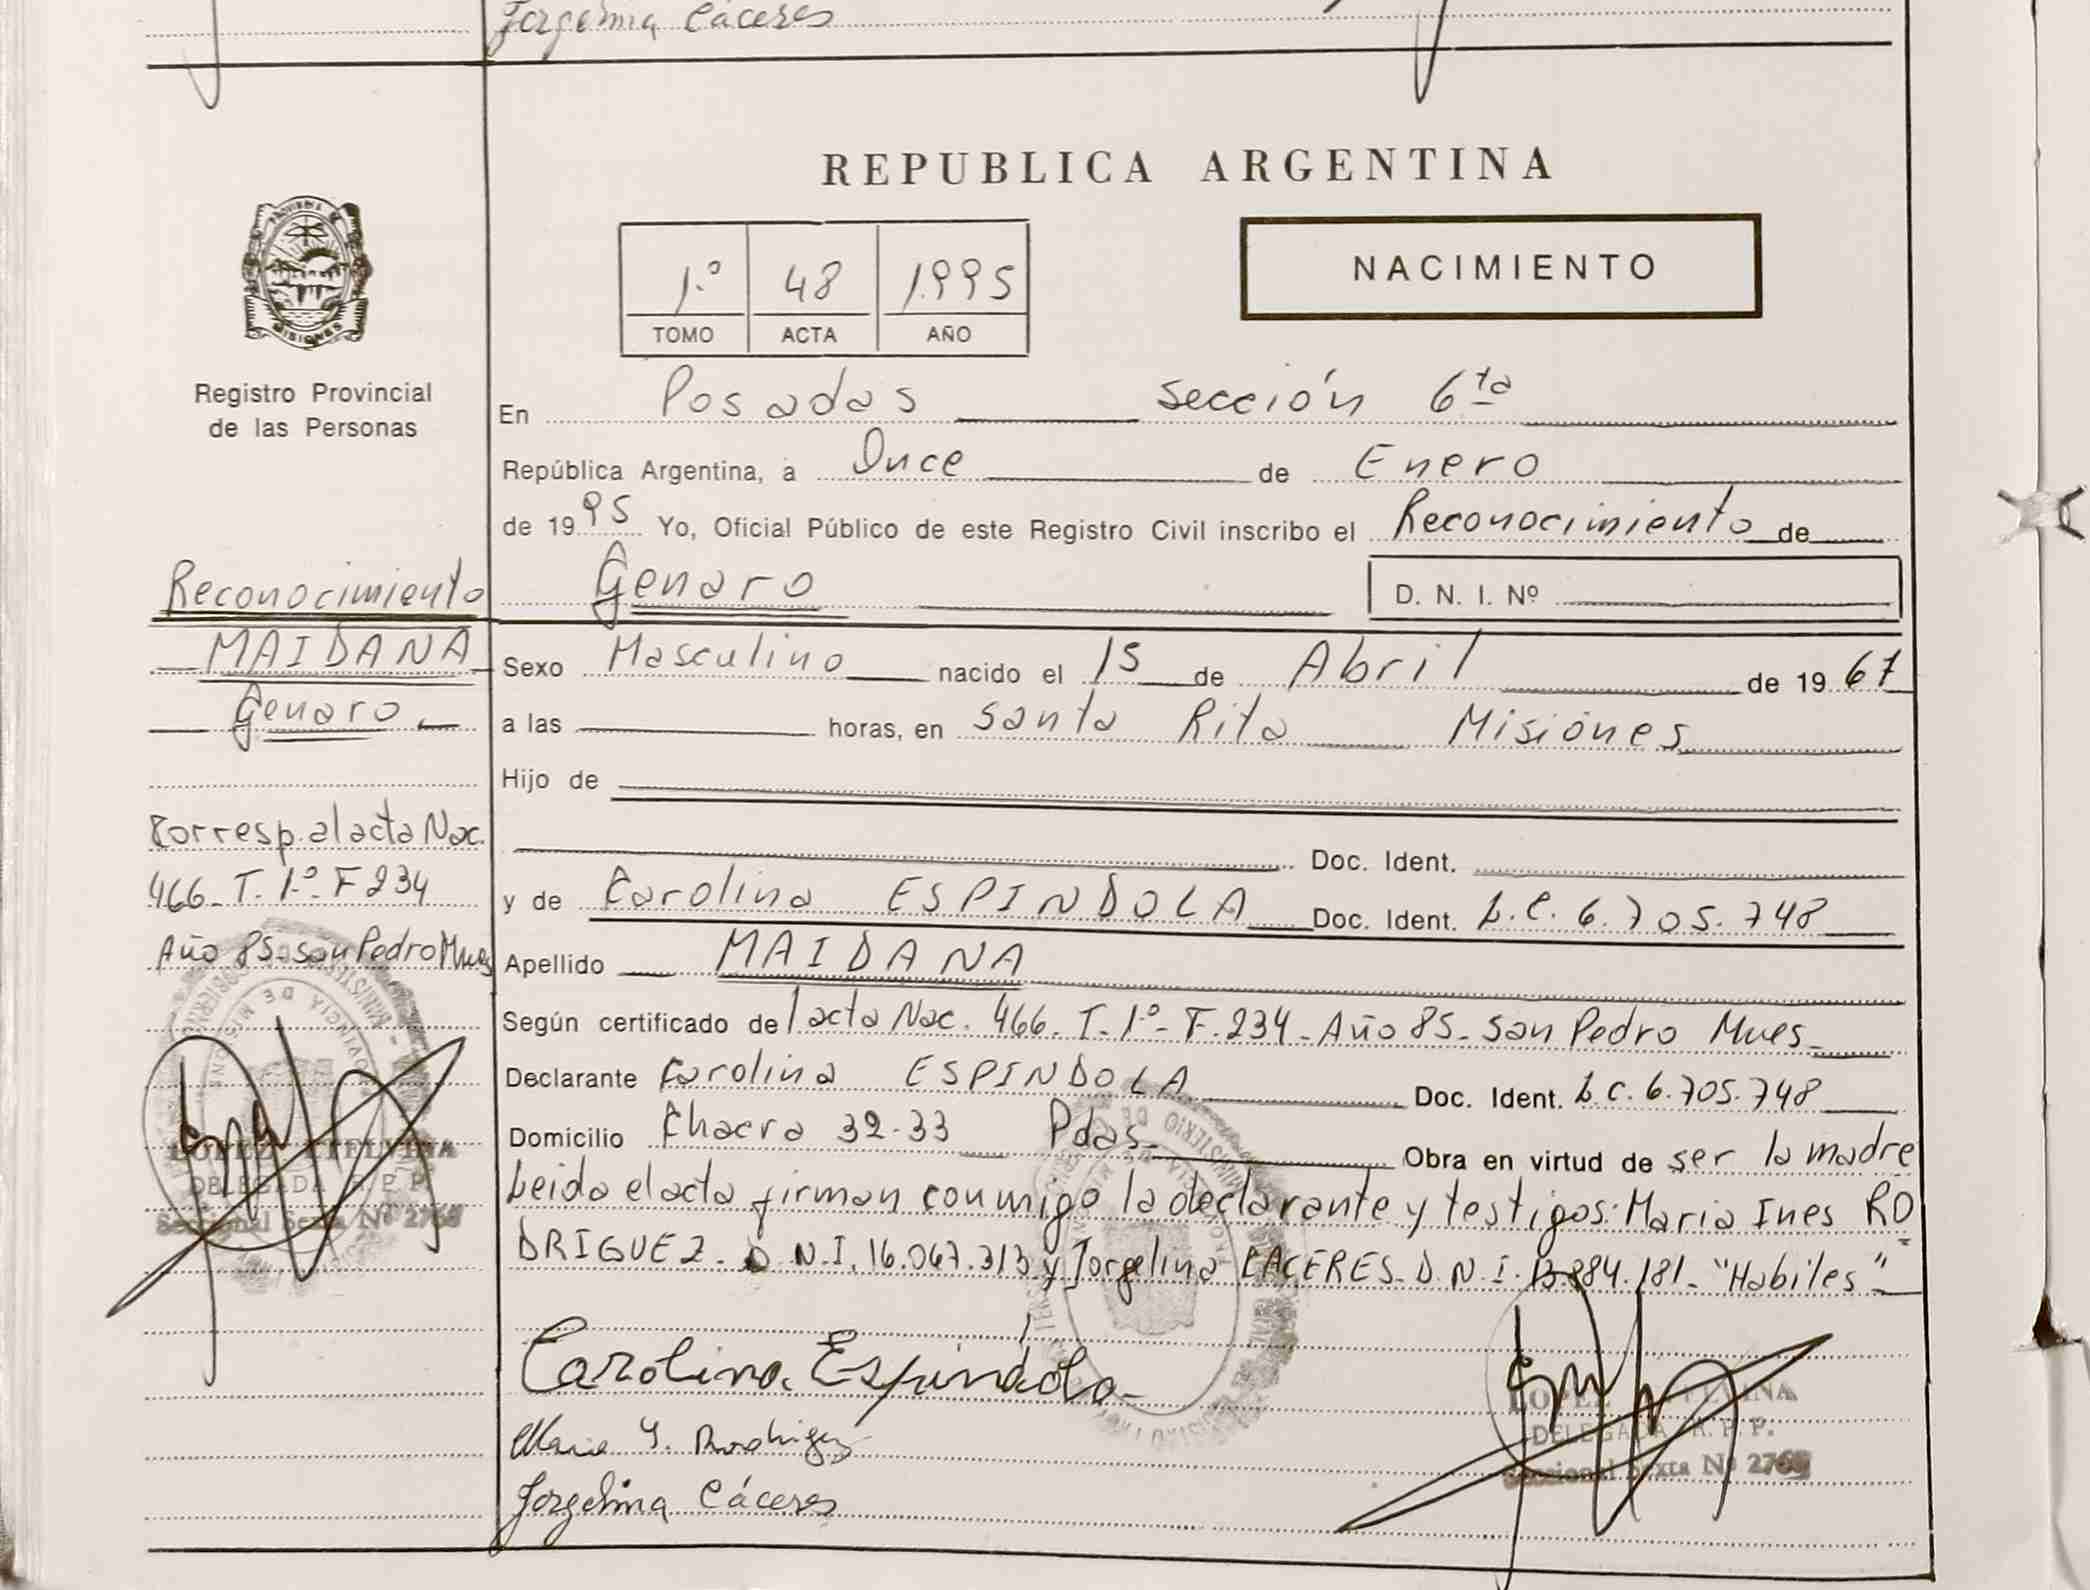 Jorgelina Cáceres
REPUBLICA ARGENTINA
PROVINCIA DE
MISIONES
1º 48 1995
TOMO ACTA AÑO
NACIMIENTO
Registro Provincial
de las Personas
En Posadas sección 6ta
República Argentina, a Once de Enero
de 1995 Yo, Oficial Público de este Registro Civil inscribo el Reconocimiento de
Genaro D. N. I. Nº
Reconocimiento
MAIDANA
Genaro
Sexo Masculino nacido el 15 de Abril de 1967
a las horas, en Santa Rita Misiones
Hijo de
Doc. Ident.
Corresp. al acta Nac.
466. T. 1º F 234
Año 85. San Pedro Mnes
y de Carolina ESPINDOLA Doc. Ident. L.C. 6.705.748
Apellido MAIDANA
Según certificado del acta Nac. 466. T. 1º. F. 234. Año 85. San Pedro Mnes.
Declarante Carolina ESPINDOLA Doc. Ident. L.C. 6.705.748
Domicilio Chacra 32-33 Pdas. Obra en virtud de ser la madre
Leida el acta firman conmigo la declarante y testigos: Maria Ines RO
DRIGUEZ. D.N.I. 16.067.313 y Jorgelina CACERES. D.N.I. 184.181. "Habiles"
LOPEZ
DELEGADA R. P. P.
Seccional Sexta Nº
Carolina Espindola
Maria I. Rodriguez
Jorgelina Cáceres
LOPEZ
DELEGADA R. P. P.
Seccional Sexta Nº